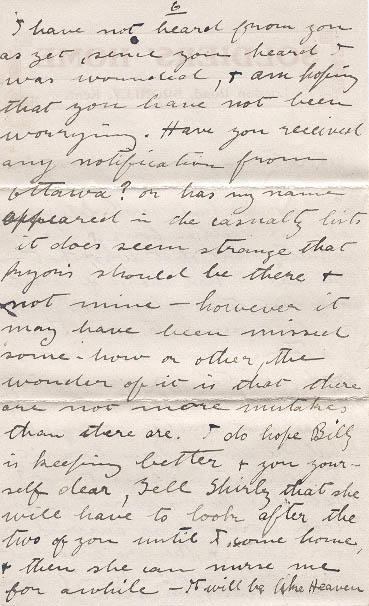 6
I have not heard from you
as yet, since you heard I
was wounded, & am hoping
that you have not been
worrying. Have you received
any notification from
Ottawa? or has my name
appeared in the casualty lists
it does seem strange that
Pryor's should be there &
not mine – however it
may have been missed
some-how or other, the
wonder of it is that there
are not more mistakes
than there are. I do hope Billy
is keeping better & you your-
self dear, Tell Shirley that she
will have to look after the
two of you until I come home,
& then she can nurse me
for awhile – It will be like Heaven